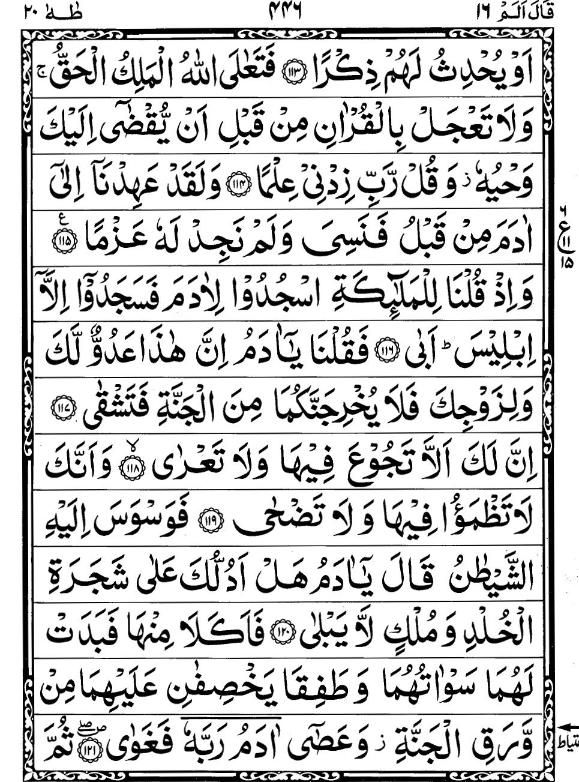 قَالَ اَلَمْ ١٦ ٤٤٦ طٰهٰ ٢٠
اَوْ يُحْدِثُ لَهُمْ ذِكْرًا ﴿١١٣﴾ فَتَعٰلَى اللّٰهُ الْمَلِكُ الْحَقُّ ۚ
وَلَا تَعْجَلْ بِالْقُرْاٰنِ مِنْ قَبْلِ اَنْ يُّقْضٰٓى اِلَيْكَ
وَحْيُهٗ ز وَقُلْ رَّبِّ زِدْنِيْ عِلْمًا ﴿١١٤﴾ وَلَقَدْ عَهِدْنَآ اِلٰٓى
اٰدَمَ مِنْ قَبْلُ فَنَسِيَ وَلَمْ نَجِدْ لَهٗ عَزْمًا ﴿١١٥﴾ ع
٦ ع ١١ ١٥
وَاِذْ قُلْنَا لِلْمَلٰٓئِكَةِ اسْجُدُوْا لِاٰدَمَ فَسَجَدُوْٓا اِلَّآ
اِبْلِيْسَ ؕ اَبٰى ﴿١١٦﴾ فَقُلْنَا يٰٓاٰدَمُ اِنَّ هٰذَا عَدُوٌّ لَّكَ
وَلِزَوْجِكَ فَلَا يُخْرِجَنَّكُمَا مِنَ الْجَنَّةِ فَتَشْقٰى ﴿١١٧﴾
اِنَّ لَكَ اَلَّا تَجُوْعَ فِيْهَا وَلَا تَعْرٰى ﴿١١٨﴾ لا وَاَنَّكَ
لَا تَظْمَؤُا فِيْهَا وَلَا تَضْحٰى ﴿١١٩﴾ فَوَسْوَسَ اِلَيْهِ
الشَّيْطٰنُ قَالَ يٰٓاٰدَمُ هَلْ اَدُلُّكَ عَلٰى شَجَرَةِ
الْخُلْدِ وَمُلْكٍ لَّا يَبْلٰى ﴿١٢٠﴾ فَاَكَلَا مِنْهَا فَبَدَتْ
لَهُمَا سَوْاٰتُهُمَا وَطَفِقَا يَخْصِفٰنِ عَلَيْهِمَا مِنْ
وَّرَقِ الْجَنَّةِ ز وَعَصٰٓى اٰدَمُ رَبَّهٗ فَغَوٰى ﴿١٢١﴾ ثُمَّ